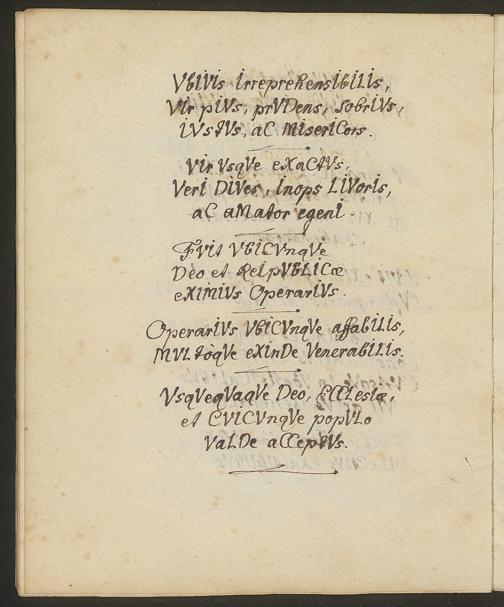 VbIVIs IrreprehensIbILIs,
VIr pIVs, prVDens, sobrIVs,
IVstVs, aC MIserICors.
VIr VsqVe eXaCtVs,
VerI DIVes, Inops LIVorIs,
aC aMator egenI.
FVIt VbICVnqVe
Deo et ReIpVbLICæ
eXIMIVs OperarIVs.
OperarIVs VbICVnqVe affabILIs,
MVLtoqVe eXInDe VenerabILIs.
VsqVeqVaqVe Deo, ECCLesIæ,
et CVICVnqVe popVLo
VaLDe aCCeptVs.